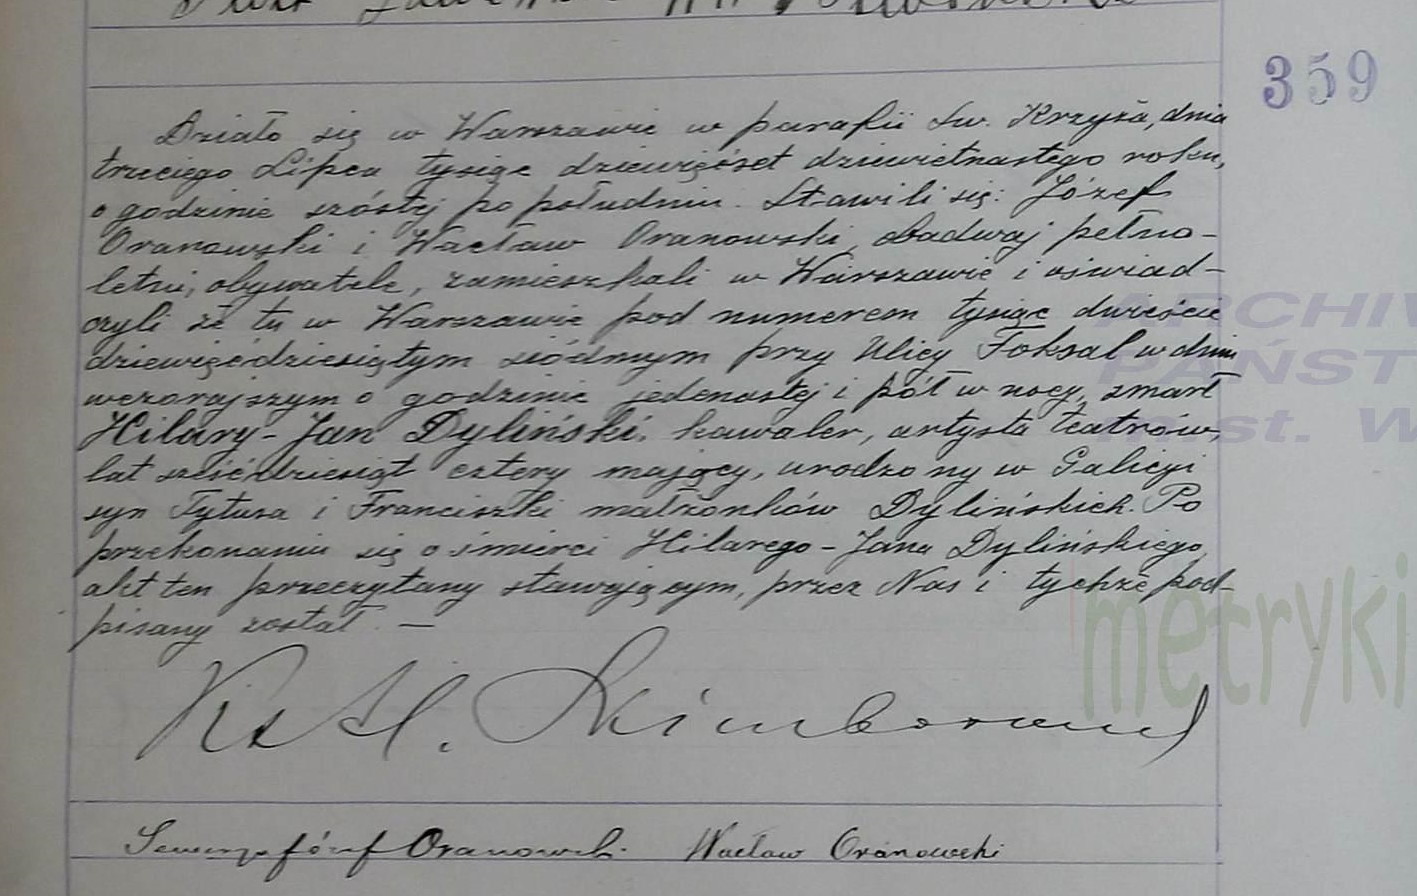 359
Działo się w Warszawie w parafii Św. Krzyża, dnia
trzeciego Lipca tysiąc dziewięćset dziewietnastego roku,
o godzinie szóstej po południu. Stawili się: Józef
Oranowski i Wacław Oranowski, obadwaj pełno-
letni, obywatele, zamieszkali w Warszawie i oświad-
czyli że tu w Warszawie pod numerem tysiąc dwieście
dziewięćdziesiątym siódmym przy Ulicy Foksal w dniu
wczorajszym o godzinie jedenastej i pół w nocy, zmarł
Hilary-Jan Dyliński, kawaler, artysta teatrów,
lat sześćdziesiąt cztery mający, urodzony w Galicyi
syn Tytusa i Franciszki małżonków Dylińskich. Po
przekonaniu się o śmierci Hilarego-Jana Dylińskiego,
akt ten przeczytany stawającym, przez Nas i tychże pod-
pisany został. —
Józef Oranowski. Wacław Oranowski
ARCHIW
PAŃST
m.st. W
metryki